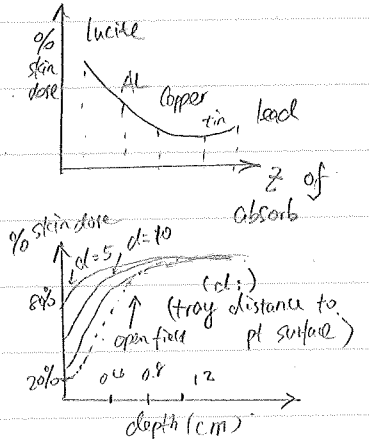 %
skin
dose
Lucite
AL
Copper
tin
Lead
Z of
absorb
% skin dose
d=5
d=10
80%
(d:)
(tray distance to
pt surface)
open field
20%
0.8
1.2
depth (cm)